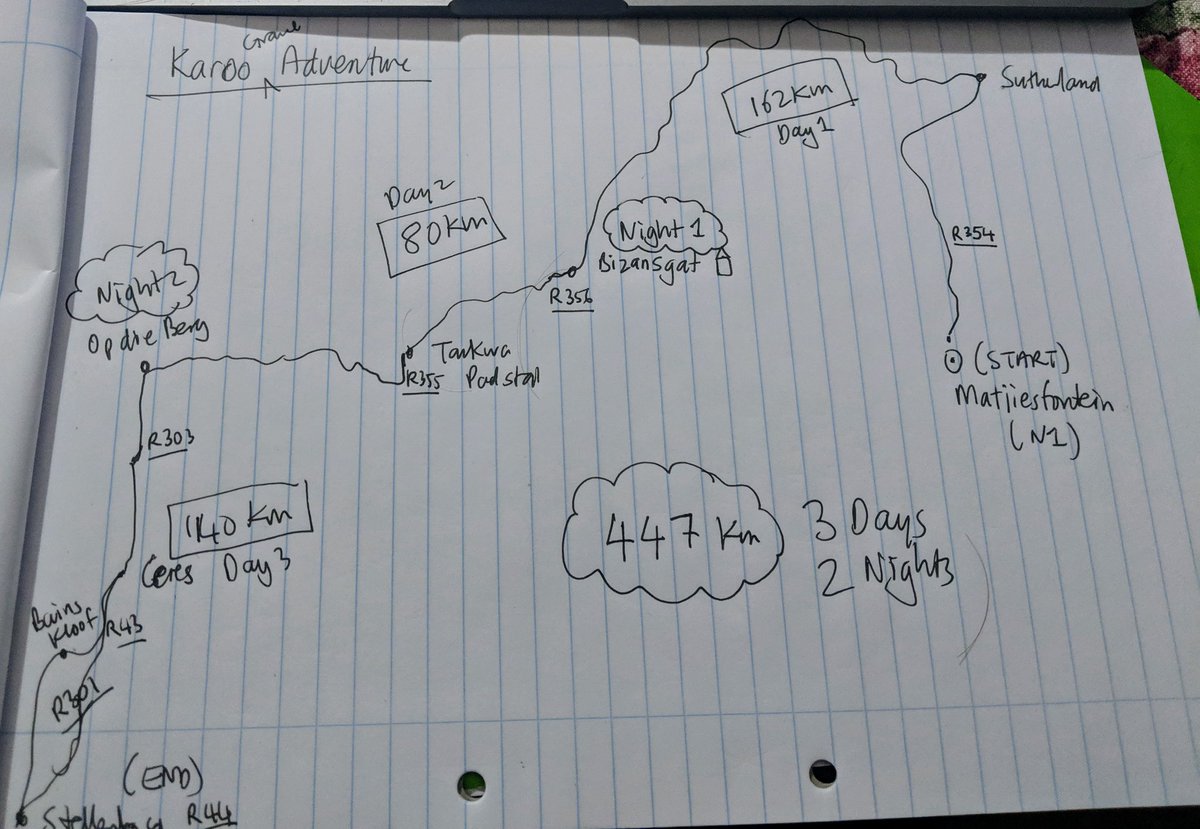 Karoo Gravel Adventure
162km
Day 1
Sutherland
Day 2
80km
Night 1
Bizansgat
R354
R356
Night 2
Op die Berg
Tankwa
R355 Padstal
(START)
Matjiesfontein
(N1)
R303
140 km
Ceres Day 3
447 km
3 Days
2 Nights
Bains
Kloof
R43
R301
(END)
R44